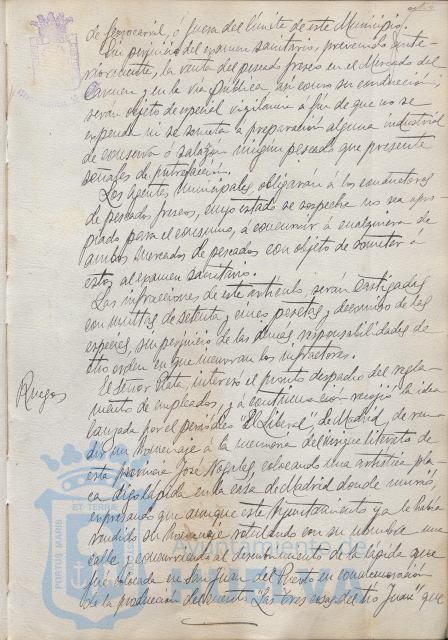 de ferrocarril, ó fuera del límite de este Municipio.
Sin perjuicio del examen sanitario, prevenido ante-
riormente, la venta del pescado fresco en el Mercado del
Carmen y en la vía pública así como su conducción,
serán objeto de especial vigilancia á fin de que no se
expenda ni se someta a preparación alguna industrial
de conserva ó salazón ningún pescado que presente
señales de putrefacción.
Los Agentes municipales, obligarán á los conductores
de pescados frescos, cuyo estado se sospeche no sea apro-
piado para el consumo, á concurrir á cualquiera de
ambos mercados de pescados con objeto de someter á
estos al examen sanitario.
Las infracciones de este artículo serán castigadas
con multas de setenta y cinco pesetas y decomiso de las
especies, sin perjuicio de las demás responsabilidades de
otro orden en que incurran los infractores.
Ruegos
El Señor Plata, interesó el pronto despacho del regla-
mento de empleados, y á continuación recogió la idea
lanzada por el periódico "El Liberal", de Madrid, de ren-
dir un homenaje á la memoria del insigne literato de
esta provincia José Nogales, colocando una artística pla-
ca ó lápida en la casa de Madrid donde murió,
expresando que aunque este Ayuntamiento ya le había
rendido su homenaje rotulando con su nombre una
calle y concurriendo al descubrimiento de la lápida que
fué colocada en San Juan del Puerto en conmemoración
de la producción del cuento "Las tres cosas del tío Juan" que
PORTUS MARIS
ET TERRAE
Ayuntamiento de